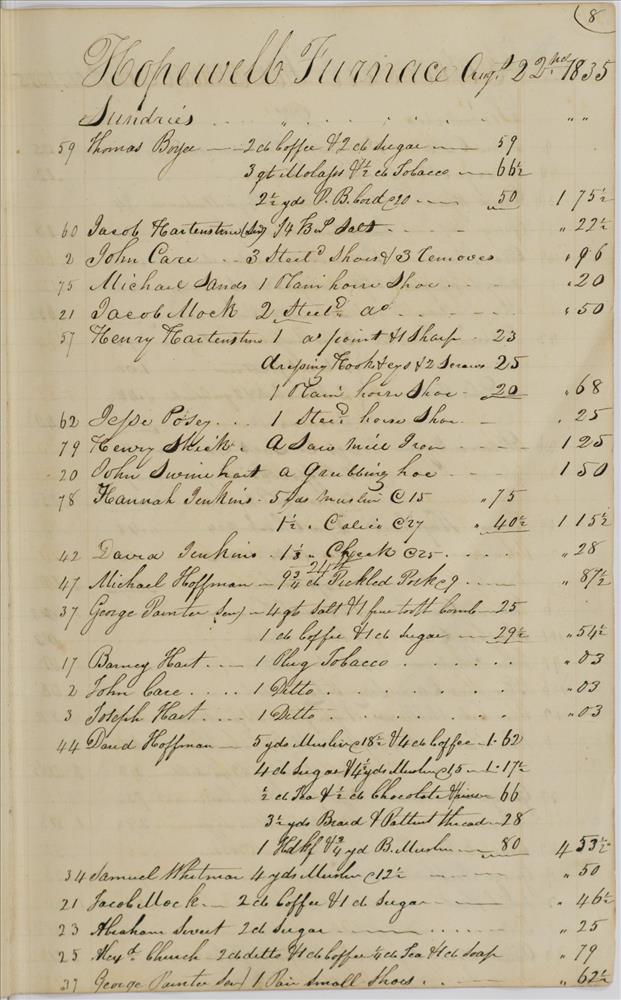 8
Hopewell Furnace Augt 22nd 1835
Sundries . . " . . . . . . " "
59 Thomas Boyer — 2 lb Coffee & 2 lb Sugar — 59
3 qt Molasses & ½ lb Tobacco — 66½
2½ yds P. B. Cord @20 — 50 1 75½
60 Jacob Hartenstine (Sr) 14 lb Salt . . . . " 22½
2 John Care . . 3 Steeld Shoes & 3 Removes " 96
75 Michael Sands 1 Plain horse Shoe . . . " 20
21 Jacob Mock 2 Steeld do . . . . . " 50
57 Henry Hartenstine 1 do point & 1 Sharp - 23
dressing Hook & eye & 2 Screws 25
1 Plain horse Shoe - 20 " 68
62 Jesse Posey . . . 1 Steeld horse Shoe . . " 25
79 Henry . A Saw Mill Iron - - - - 1 25
20 John Swinehart a Grubbing hoe - - - 1 50
78 Hannah Jenkins - 5 yds Muslin @15 " 75
1½ " Calico @27 " 40½ 1 15½
42 David Jenkins . 1⅛ " Check @25 . . . . " 28
24th
47 Michael Hoffman — 9¾ lb Pickled Pork @9 . - - - " 87½
37 George Painter Sen) — 4 qt Salt & 1 fine tooth Comb — 25
1 lb Coffee & 1 lb Sugar — 29½ " 54½
17 Barney Hart . . — 1 Plug Tobacco . . . . . . " 03
2 John Care . . . . 1 Ditto . . . . . . " 03
3 Joseph Hart . . . — 1 Ditto . . . . . . " 03
44 David Hoffman — 5 yds Muslin @18½ & 4 lb Coffee — 1.62
4 lb Sugar & 4½ yds Muslin @15 — 1.17½
½ lb Tea & ½ lb Chocolate 66
3½ yds Braid & Pattent thread — 28
1 Hdkf & ¾ yd B. Muslin — 80 4 53½
34 Samuel Whitman 4 yds Muslin @12½ — - - - " 50
21 Jacob Mock — 2 lb Coffee & 1 lb Sugar — . . . . " 46½
23 Abraham Sweet 2 lb Sugar — . . . . . " 25
25 Alexd Church 2 lb ditto & 1 lb Coffee ¼ lb Tea & 1 lb Soap " 79
37 George Painter Sen) 1 Pair Small Shoes . . — " 62½